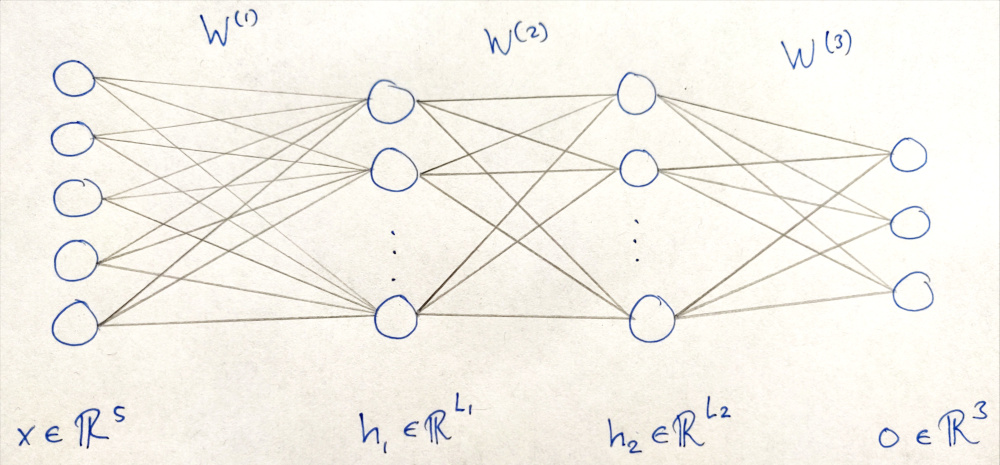 W⁽¹⁾ W⁽²⁾ W⁽³⁾
x ∈ ℝ⁵ h₁ ∈ ℝᴸ¹ h₂ ∈ ℝᴸ² o ∈ ℝ³